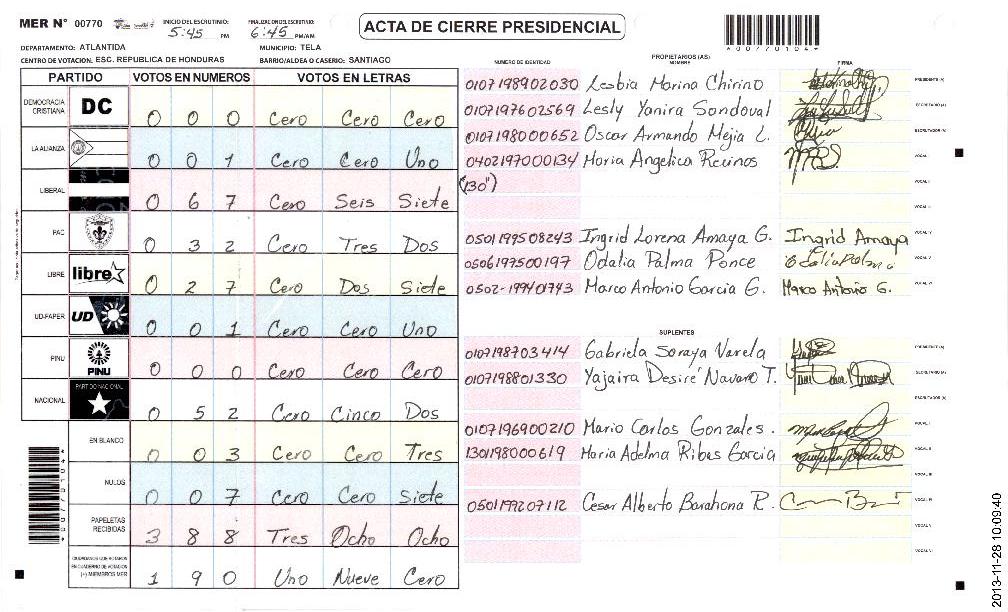 MER N° 00770
INICIO DEL ESCRUTINIO: 5:45 PM
FINALIZACION DEL ESCRUTINIO: 6:45 PM/AM
ACTA DE CIERRE PRESIDENCIAL
*00770104*
DEPARTAMENTO: ATLANTIDA MUNICIPIO: TELA
CENTRO DE VOTACION, ESC. REPUBLICA DE HONDURAS BARRIO/ALDEA O CASERIO: SANTIAGO
PARTIDO VOTOS EN NUMEROS VOTOS EN LETRAS
DEMOCRACIA CRISTIANA DC 0 0 0 Cero Cero Cero
LA ALIANZA 0 0 1 Cero Cero Uno
LIBERAL 0 6 7 Cero Seis Siete
PAC 0 3 2 Cero Tres Dos
LIBRE libre 0 2 7 Cero Dos Siete
UD-FAPER UD 0 0 1 Cero Cero Uno
PINU PINU 0 0 0 Cero Cero Cero
NACIONAL PARTIDO NACIONAL 0 5 2 Cero Cinco Dos
EN BLANCO 0 0 3 Cero Cero Tres
NULOS 0 0 7 Cero Cero Siete
PAPELETAS RECIBIDAS 3 8 8 Tres Ocho Ocho
CIUDADANOS QUE VOTARON EN CUADERNO DE VOTACION (+) MIEMBROS MER 1 9 0 Uno Nueve Cero
NUMERO DE IDENTIDAD PROPIETARIOS (AS) NOMBRE FIRMA
0107198902030 Lesbia Marina Chirino PRESIDENTE (A)
0107197602569 Lesly Yanira Sandoval SECRETARIO (A)
0107198000652 Oscar Armando Mejia L. ESCRUTADOR (A)
0402197000134 Maria Angelica Recinos VOCAL I
(130") VOCAL II
VOCAL III
0501199508243 Ingrid Lorena Amaya G. Ingrid Amaya VOCAL IV
0506197500197 Odalia Palma Ponce Odalia Palma VOCAL V
0502-199401743 Marco Antonio Garcia G. Marco Antonio G. VOCAL VI
SUPLENTES
0107198703414 Gabriela Soraya Varela PRESIDENTE (A)
0107198801330 Yajaira Desiré Navaro T. SECRETARIO (A)
ESCRUTADOR (A)
0107196900210 Mario Carlos Gonzales. VOCAL I
1301198000619 Maria Adelma Ribas Garcia VOCAL II
VOCAL III
0501199207112 Cesar Alberto Barahona R. VOCAL IV
VOCAL V
VOCAL VI
2013-11-28 10:09:40